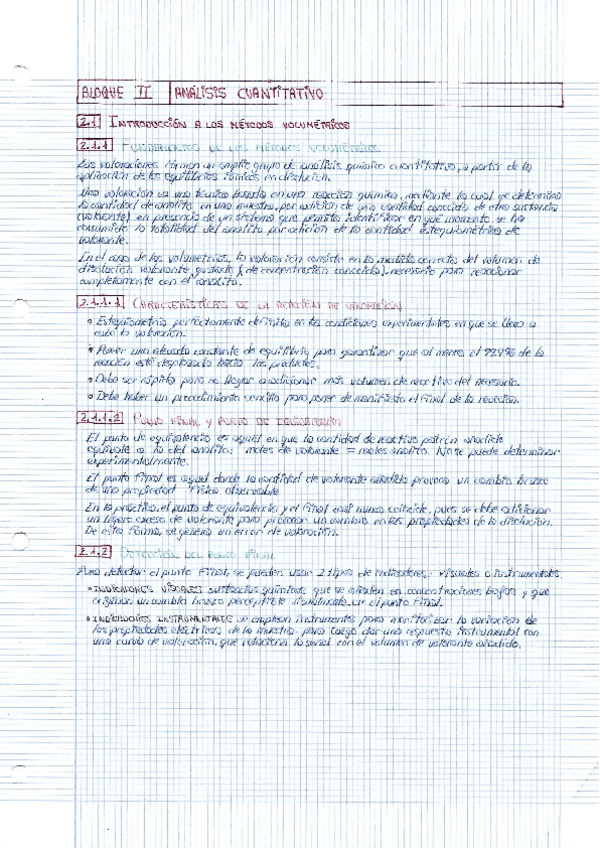 BLOQUE II ANÁLISIS CUANTITATIVO
2.1 INTRODUCCIÓN A LOS MÉTODOS VOLUMÉTRICOS
2.1.1 FUNDAMENTOS DE LOS MÉTODOS VOLUMÉTRICOS
Las valoraciones forman un amplio grupo de análisis químico cuantitativo, a partir de la
aplicación de los equilibrios iónicos en disolución.
Una valoración es una técnica basada en una reacción química, mediante la cual se determina
la cantidad de analito en una muestra, por adición de una cantidad conocida de otra sustancia
(valorante) en presencia de un sistema que permita identificar en qué momento se ha
consumido la totalidad del analito por adición de la cantidad estequiométrica de
valorante.
En el caso de las volumetrías, la valoración consiste en la medida correcta del volumen de
disolución valorante, gastado (de concentración conocida), necesario para reaccionar
completamente con el analito.
2.1.1.1 CARACTERÍSTICAS DE LA REACCIÓN DE VALORACIÓN
• Estequiometría perfectamente definida en las condiciones experimentales en que se lleva a
cabo la valoración.
• Poseer una elevada constante de equilibrio, para garantizar que al menos el 99.9% de la
reacción está desplazada hacia los productos.
• Debe ser rápida para no llegar a adicionar más volumen de reactivo del necesario.
• Debe haber un procedimiento sencillo para poner de manifiesto el final de la reacción.
2.1.1.2 PUNTO FINAL Y PUNTO DE EQUIVALENCIA
El punto de equivalencia es aquel en que la cantidad de reactivo patrón añadida
equivale a la del analito: moles de valorante = moles analito. No se puede determinar
experimentalmente.
El punto final es aquel donde la cantidad de valorante añadida provoca un cambio brusco
de una propiedad física observable
En la práctica, el punto de equivalencia y el final casi nunca coincide, pues se debe adicionar
un ligero exceso de valorante para provocar un cambio en las propiedades de la disolución.
De esta forma, se genera un error de valoración.
2.1.2 DETECCIÓN DEL PUNTO FINAL
Para detectar el punto final, se pueden usar 2 tipos de indicadores: visuales o instrumentales
• INDICADORES VISUALES sustancias químicas que se añaden en concentraciones bajas y que
originan un cambio brusco perceptible visualmente en el punto final.
• INDICADORES INSTRUMENTALES se emplean instrumentos para monitorizar la variación de
las propiedades eléctricas de la muestra para luego dar una respuesta instrumental con
una curva de valoración, que relaciona la señal con el volumen de valorante añadido.